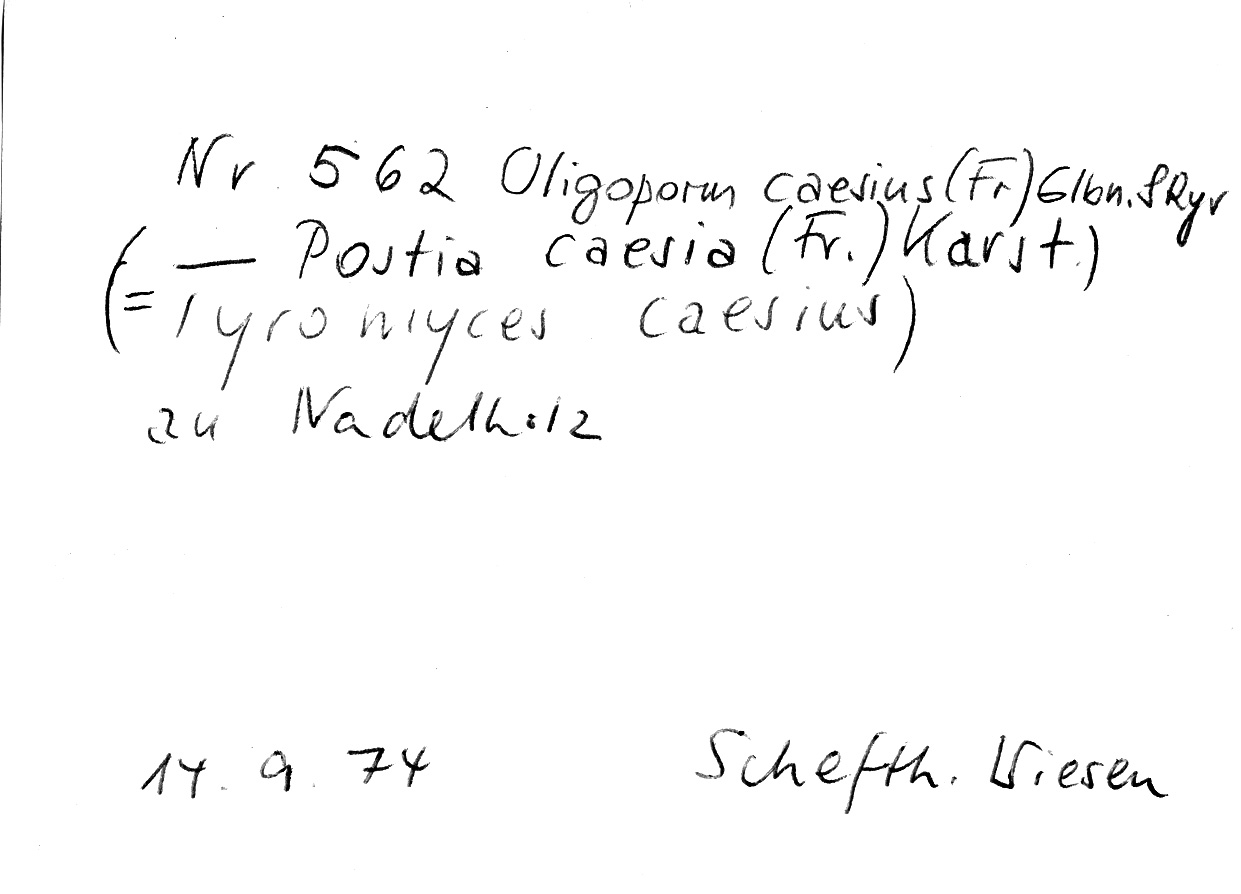 Nr. 562 Oligoporus caesius (Fr.) Glbn. & Ryv
( — Postia caesia (Fr.) Karst.)
(= Tyromyces caesius)
an Nadelholz
14. 9. 74 Schefth. Wiesen